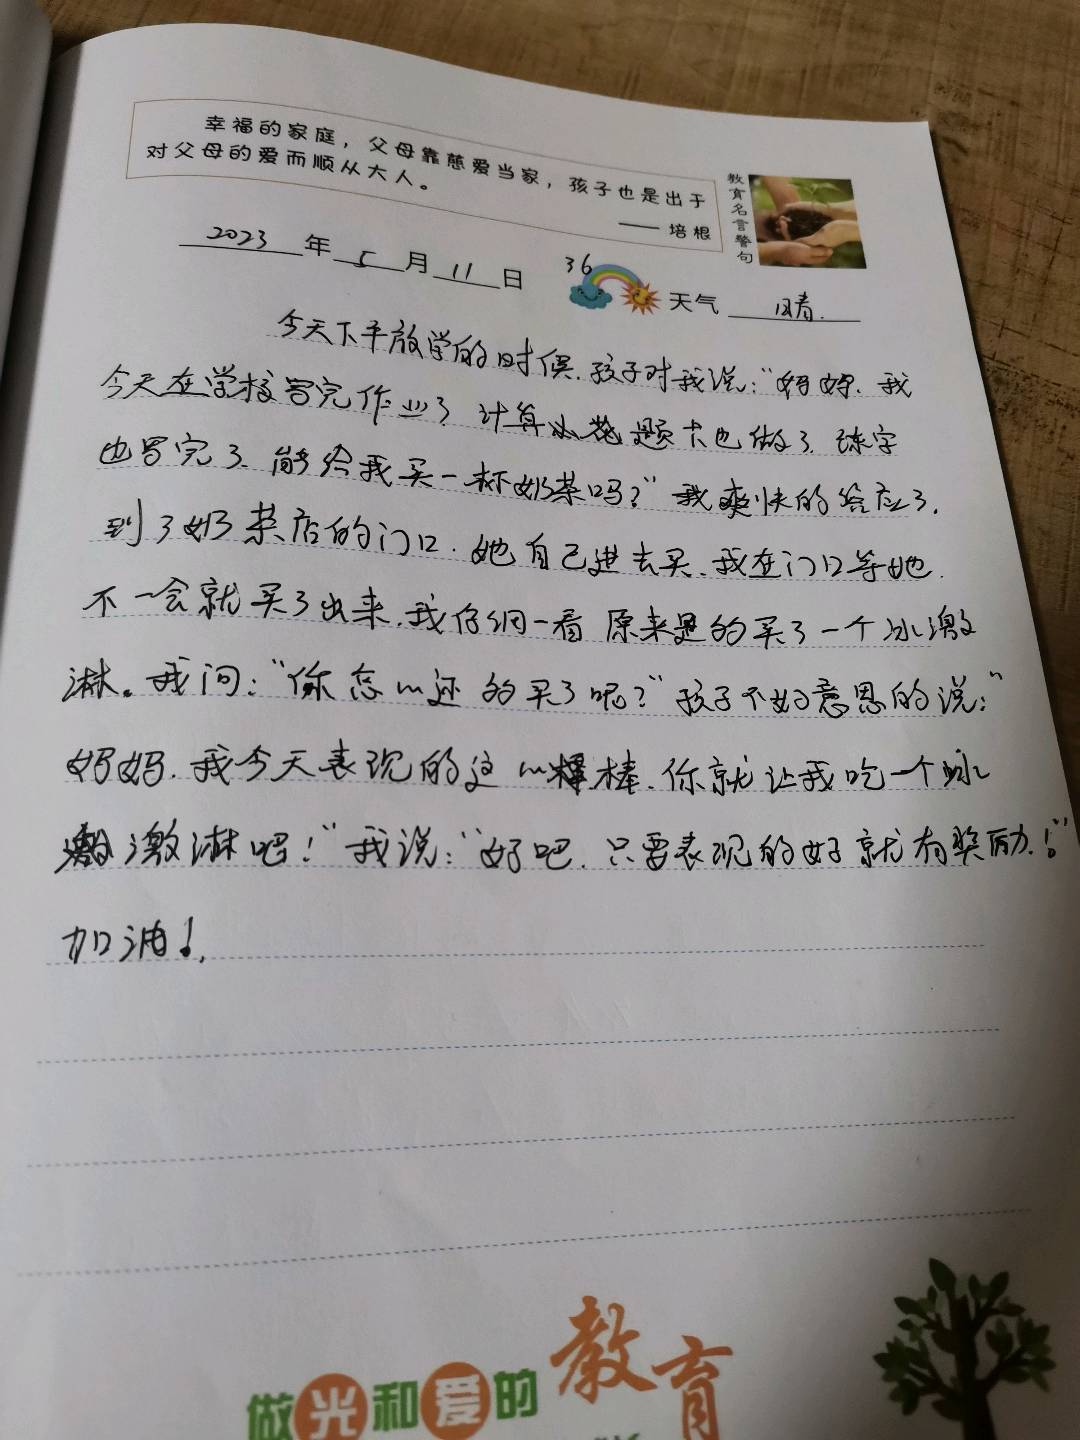 幸福的家庭，父母靠慈爱当家，孩子也是出于
对父母的爱而顺从大人。
—— 培根
教育名言警句
2023年5月11日
36
天气 晴.
今天下午放学的时候.孩子对我说:"妈妈.我
今天在学校写完作业了 计算小 题卡也做了.练字
也写完了.能给我买一杯奶茶吗?"我爽快的答应了.
到了奶茶店的门口.她自己进去买.我在门口等她.
不一会就买了出来.我仔细一看 原来是的买了一个冰激
淋。我问:"你怎么还的买了呢?"孩子不好意思的说:"
妈妈.我今天表现的这么棒.你就让我吃一个冰
激淋吧!"我说:"好吧.只要表现的好就有奖励.!"
加油!.
做光和爱的教育